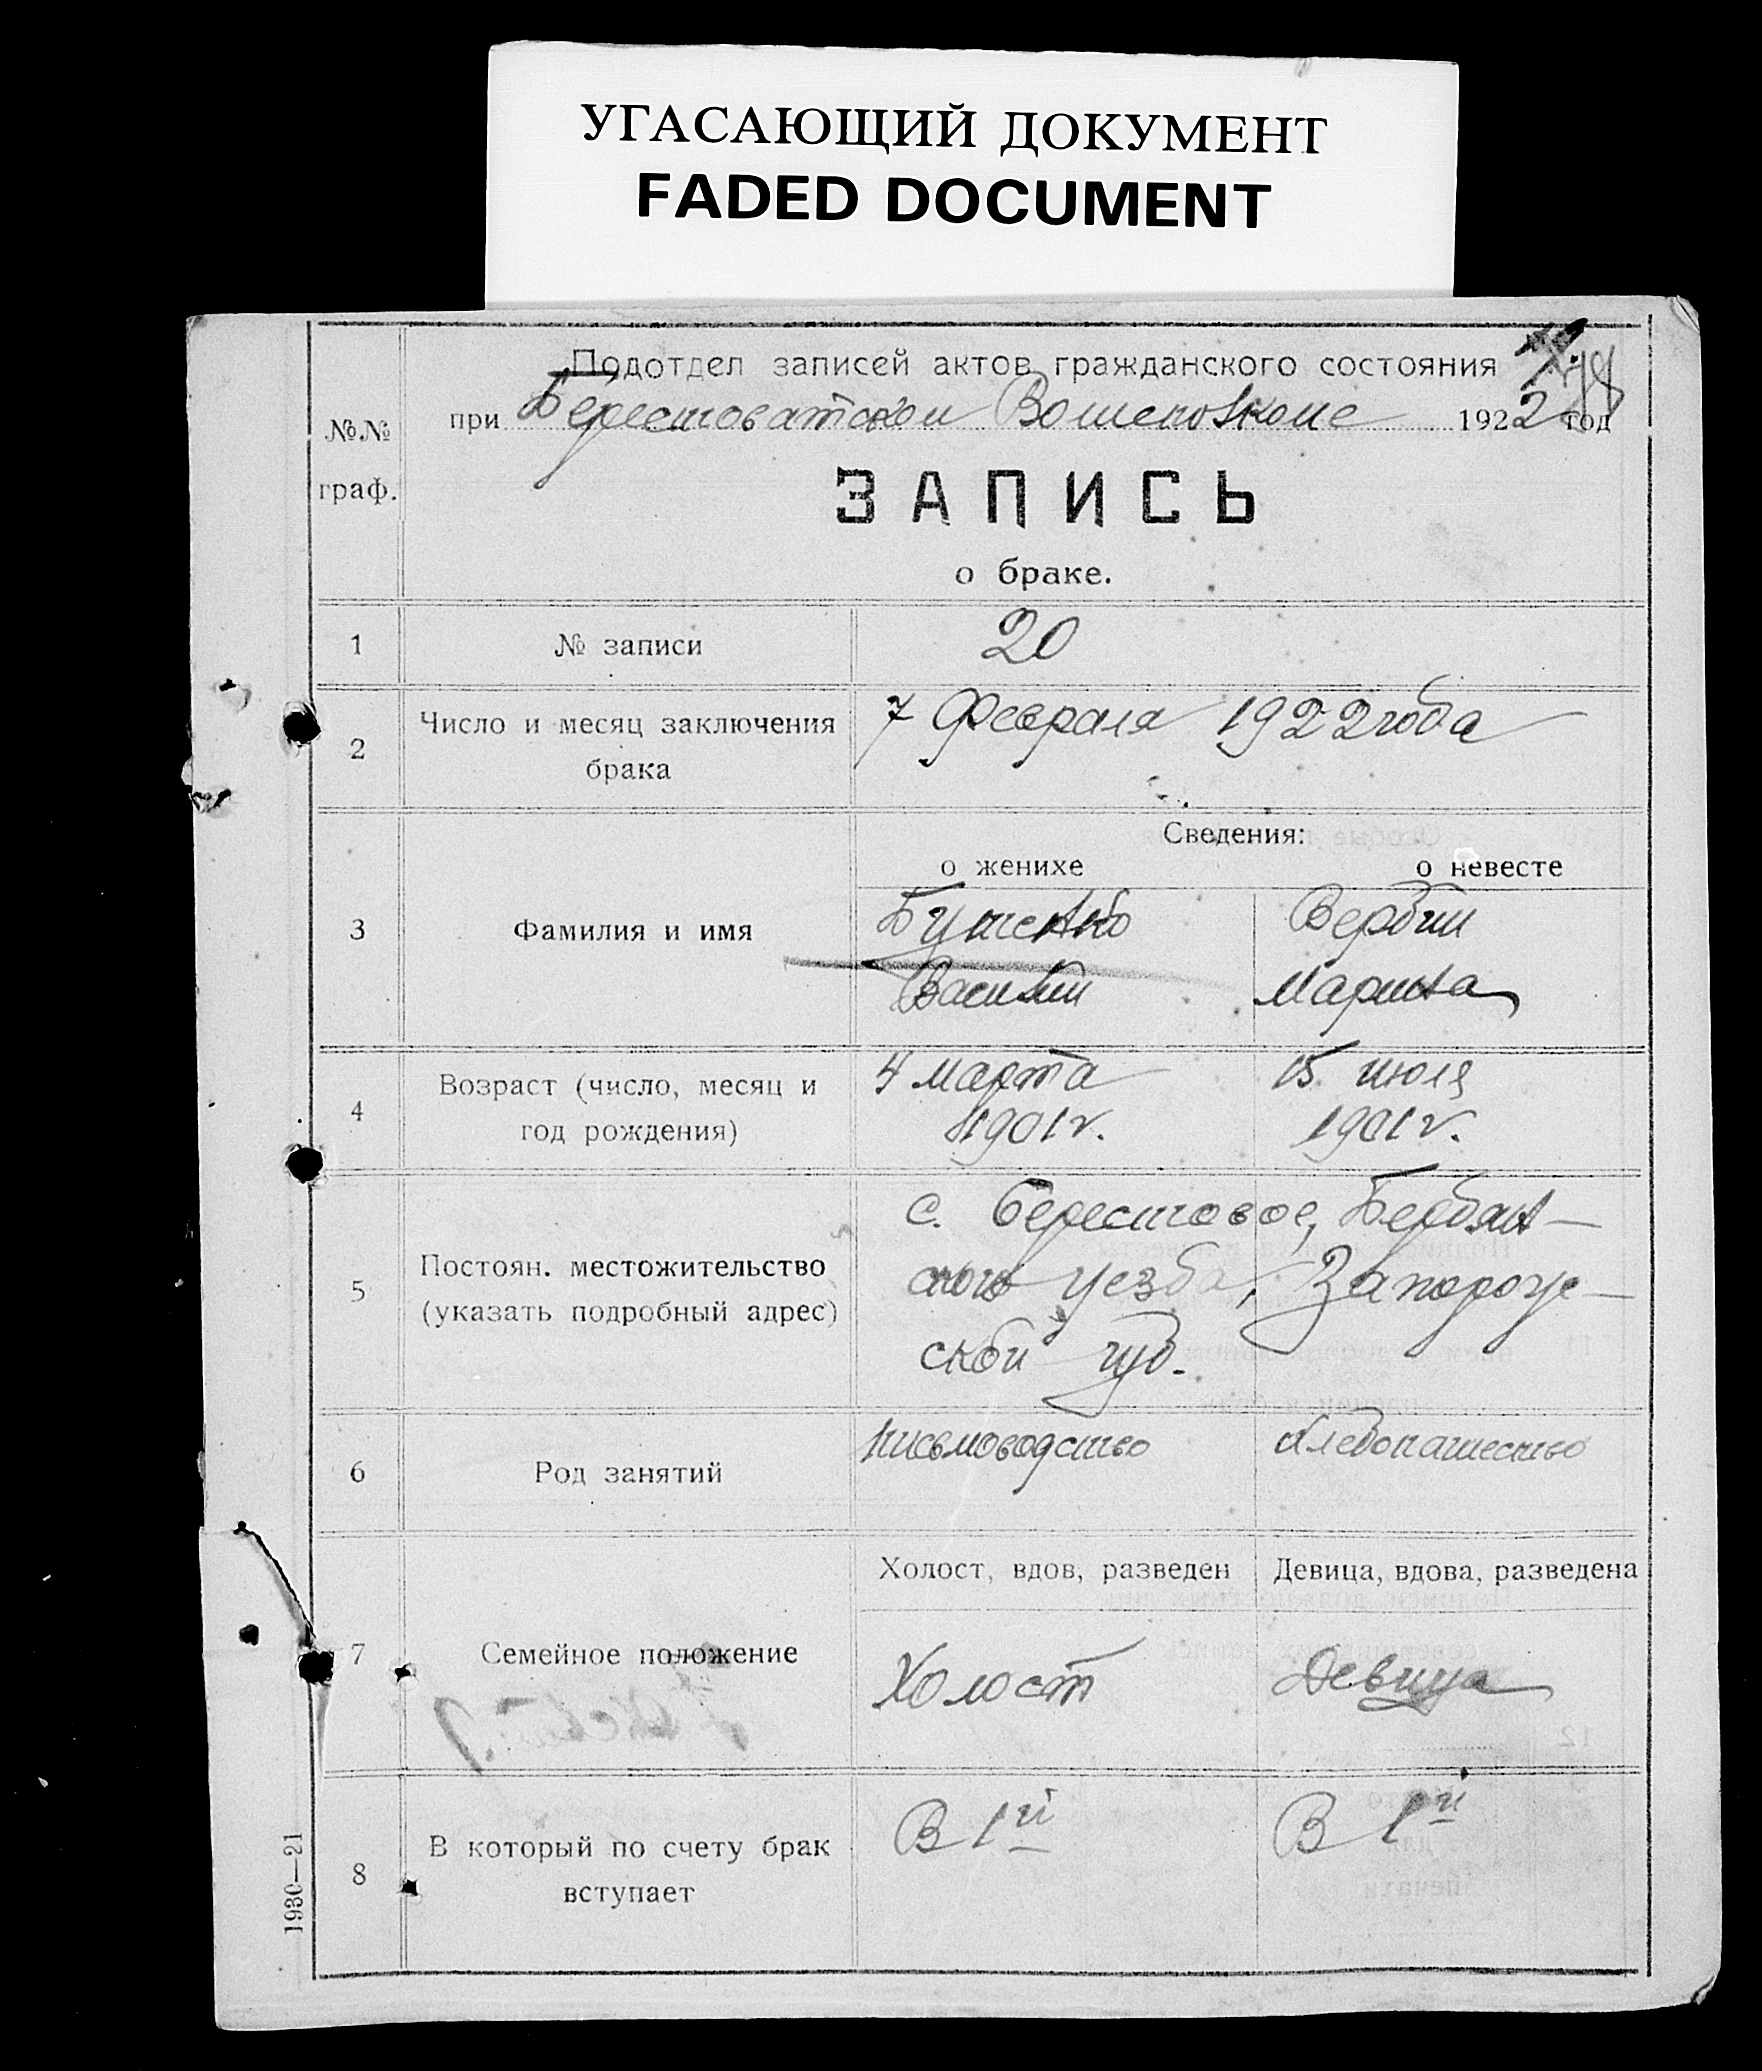 УГАСАЮЩИЙ ДОКУМЕНТ
FADED DOCUMENT
Подотдел записей актов гражданского состояния
при Берестоватском Волисполкоме 1922 год
№№
граф.
ЗАПИСЬ
о браке.
1 № записи 20
2 Число и месяц заключения
брака
7 Февраля 1922 года
Сведения:
о женихе о невесте
3 Фамилия и имя
Бутенко Вербий
Василий Марина
4 Возраст (число, месяц и
год рождения)
4 марта 15 июля
1901 г. 1901 г.
5 Постоян. местожительство
(указать подробный адрес)
с. Берестовое, Бердян-
ского уезда, Запорож-
ской губ.
6 Род занятий
письмоводство хлебопашество
Холост, вдов, разведен Девица, вдова, разведена
7 Семейное положение
Холост Девица
8 В который по счету брак
вступает
В 1й В 1й
1930—21